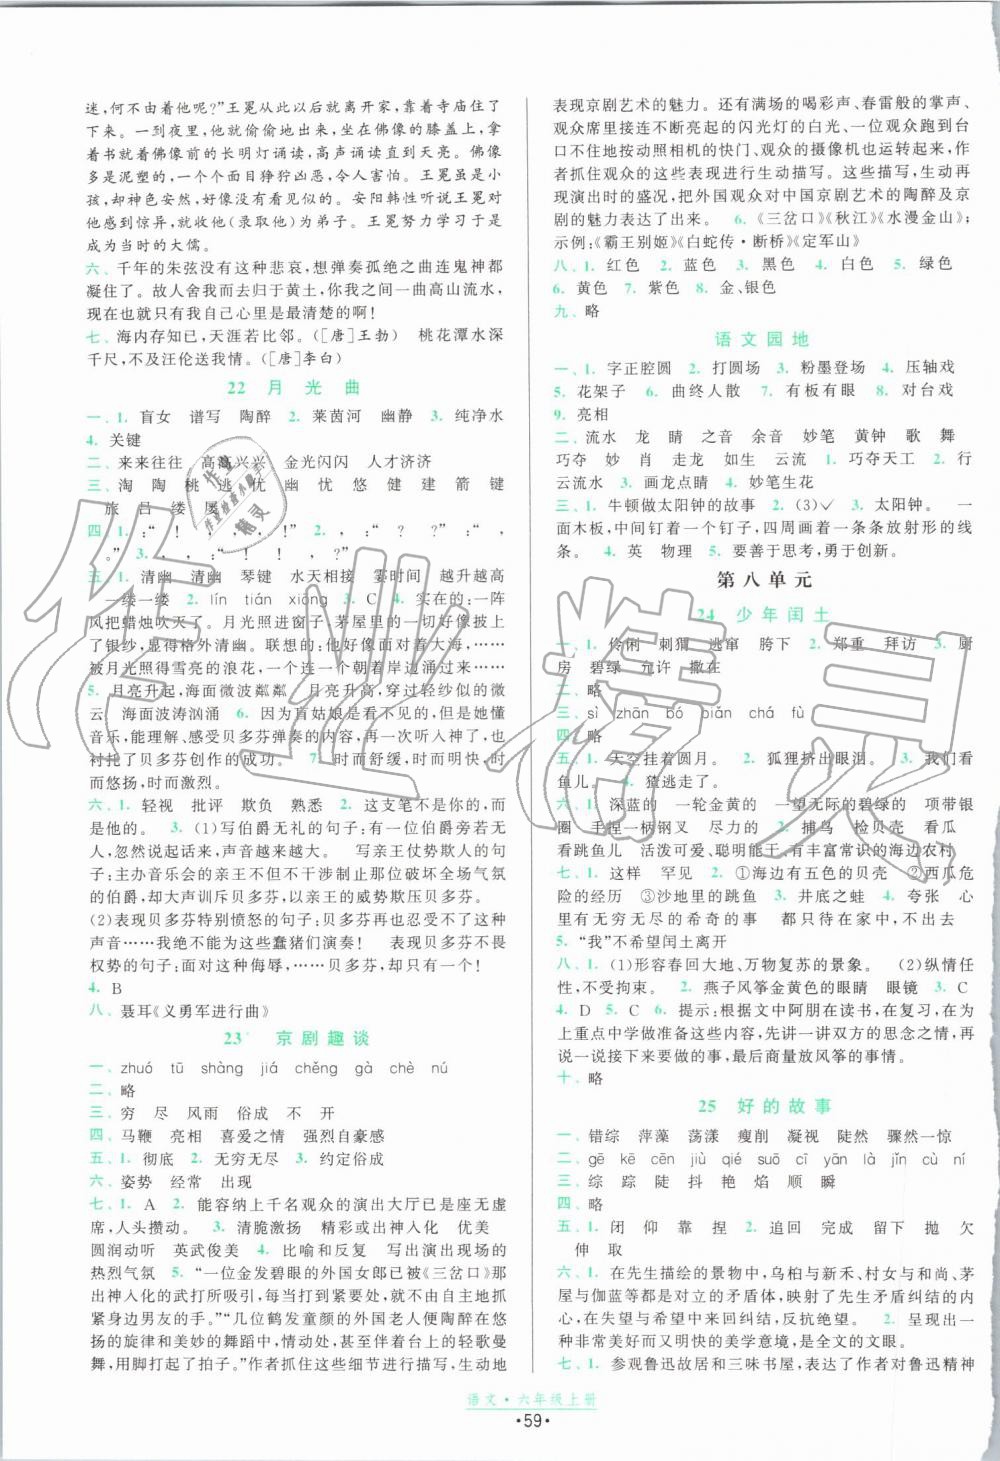 迷,何不由着他呢?”王冕从此以后就离开家,靠着寺庙住了
下来。一到夜里,他就偷偷地出来,坐在佛像的膝盖上,拿
着书就着佛像前的长明灯诵读,高声诵读直到天亮。佛像
多是泥塑的,一个个面目狰狞凶恶,令人害怕。王冕虽是小
孩,却神色安然,好像没有看见似的。安阳韩性听说王冕对
他感到惊异,就收他(录取他)为弟子。王冕努力学习于是
成为当时的大儒。
六、千年的朱弦没有这种悲哀,想弹奏孤绝之曲连鬼神都
凝住了。故人舍我而去归于黄土,你我是一曲高山流水,
现在也就只有我自己心里是最清楚的啊!
七、海内存知己,天涯若比邻。([唐]王勃) 桃花潭水深
千尺,不及汪伦送我情。([唐]李白)
22 月光曲
一、1. 盲女 谱写 陶醉 2. 莱茵河 幽静 3. 纯净水
4. 关键
二、来来往往 高高兴兴 金光闪闪 人才济济
三、淘 陶 桃 逃 优 幽 忧 悠 健 建 箭 键
旅 吕 缕 屡
四、1. :“! !” 2. ,:“, ? ?”:“,
,。” 3. ,,:“, !”
五、1. 清幽 清幽 琴键 水天相接 霎时间 越升越高
一缕一缕 2. lín tián xiáng 3. C 4. 实在的:一阵
风把蜡烛吹灭了。月光照进窗子,茅屋里的一切好像披上
了银纱,显得格外清幽。 联想的:他好像面对着大海,……
被月光照得雪亮的浪花,一个连一个朝着岸边涌过来……
5. 月亮升起,海面微波粼粼 月亮升高,穿过轻纱似的微
云 海面波涛汹涌 6. 因为盲姑娘是看不见的,但是她懂
音乐,能理解贝多芬弹奏的内容,再一次听入神了,也更加
衬托了贝多芬创作的成功。 7. 时而舒缓,时而明快,时
而悠扬,时而激烈。
六、1. 轻视 批评 欺负 熟悉 2. 这支笔不是你的,而是
我的。 3. (1)写伯爵无礼的句子:有一位伯爵旁若无人,
大声地谈笑,声音越来越大。 写亲王仗势欺人的句
子:主办音乐会的亲王不但不严厉制止那位破坏全场气氛
的伯爵,却大声训斥贝多芬。 亲王的威势欺压贝多芬。
(2)表现贝多芬特别愤怒的句子:贝多芬再也忍受不了了这种
声音……我绝不能为这些蠢猪们演奏! 表现贝多芬不畏
权势的句子:面对这种侮辱,……贝多芬,只有一个!
4. B
八、聂耳《义勇军进行曲》
23 京剧趣谈
一、zhuó tū shàng jiá chěng gà chè nú
二、略
三、穷 尽 风雨 俗成 不 开
四、马鞭 亮相 喜爱之情 强烈自豪感
五、1. 彻底 2. 无穷无尽 3. 约定俗成
六、姿势 经常 出现
七、1. A 2. 能容纳上千名观众的演出大厅已是座无虚
席,人头攒动。 3. 清脆激扬 精彩或出神入化 优美
圆润动听 英武俊美 4. 比喻和反复 写出演出现场的
热烈气氛 5. “一位金发碧眼的外国女郎已被《三岔口》那
出神入化的武打所吸引,每当打到紧要处,就不由自主地抓
紧身边男友的手。”“几位鹤发童颜的外国老人便陶醉在悠
扬的旋律和美妙的舞蹈中,情动处,甚至和着台上的轻歌曼
舞,用脚尖轻轻打起了拍子。”作者抓住这些细节进行描写,生动地
表现京剧艺术的魅力。还有满场的喝彩声、春雷般的掌声、
观众席里接连不断亮起的闪光灯的白光、一位观众跑到台
口不住地按动照相机的快门、观众的摄像机也不停运转等,
作者抓住观众的这些表现进行生动描写。这些描写,生动再
现演出时的盛况,把外国观众对中国京剧艺术的陶醉及京
剧的魅力表达了出来。 6. 《三岔口》《秋江》《水漫金山》;
示例:《霸王别姬》《白蛇传·断桥》《定军山》
八、1. 红色 2. 蓝色 3. 黑色 4. 白色 5. 绿色
6. 黄色 7. 紫色 8. 金、银色
九、略
语文园地
一、1. 字正腔圆 2. 打圆场 3. 粉墨登场 4. 压轴戏
5. 花架子 6. 曲终人散 7. 有板有眼 8. 对台戏
9. 亮相
二、流水 龙 睛 之音 余音 妙笔 黄钟 歌 舞
巧夺 妙 肖 走龙 如生 云流 1. 巧夺天工 2. 行
云流水 3. 画龙点睛 4. 妙笔生花
三、1. 牛顿做太阳钟的故事 2. (3)✓ 3. 太阳钟。 一
面木板,中间钉着一个钉子,四周画着一条条放射形的线
条。 4. 英 物理 5. 要善于思考,勇于创新。
第八单元
24 少年闰土
一、1. 伶俐 刺猬 逃窜 胯下 2. 郑重 拜访 3. 厨
房 碧绿 允许 撒在
二、略
三、sì zhān bó biǎn chá fù
四、略
五、1. 天空挂着圆月。 2. 狐狸挤出眼泪。 3. 我们看
鱼儿。 4. 猹逃走了。
六、1. 深蓝的 一轮金黄的 一望无际的碧绿的 项带银
圈 手捏一柄钢叉 尽力 2. 捕鸟 捡贝壳 看瓜
看跳鱼儿 活泼可爱、聪明能干、有丰富常识的海边农村
七、1. 这样 罕见 2. ①海边有五色的贝壳 ②西瓜危
险的经历 ③沙地里的跳鱼 3. 井底之蛙 4. 夸张 心
里有无穷无尽的希奇的事 都只待在家中,不出去
5. “我”不希望闰土离开
八、1. (1)形容春回大地、万物复苏的景象。 (2)纵情任
性,不受拘束。 2. 燕子风筝金黄色的眼睛 眼镜 3. C
4. D 5. C 6. 提示:根据文中阿朋在读书,在复习,在为
上重点中学做准备这些内容,先讲一讲双方的思念之情(一
定要真挚),再讲各自的近况,最后商量放风筝的事情。
十、略
25 好的故事
一、错综 萍藻 荡漾 瘦削 凝视 陡然 骤然一惊
二、gē kē cēn jiù qié suō cī yān là jǐn cù ní
三、综 踪 陡 徒 抖 艳 焰 顺 瞬
四、略
五、1. 闭 仰 靠 捏 2. 追回 完成 留下 抛 欠
伸 取
六、1. 在先生描绘的景物中,乌桕与新禾、村女与农夫、茅
屋与伽蓝等都为相对的立矛盾体,映射了先生矛盾纠结的内
心,在失望与希望中来回纠结,反抗绝望。 2. 呈现出一
种非常美好而又明快的美学意境,是全文的文眼。
七、1. 参观鲁迅故居和三味书屋,表达了作者对鲁迅精神
语文·六年级上册
·59·